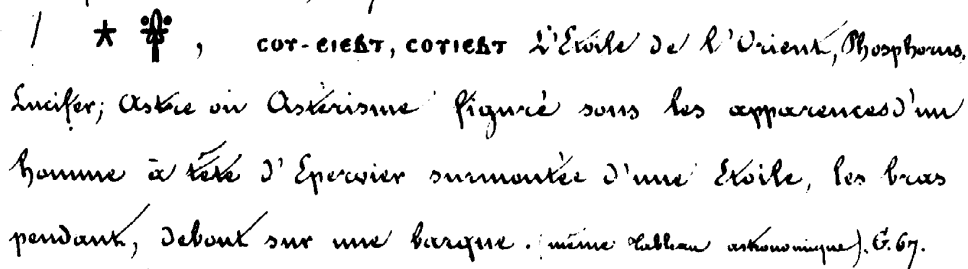 ★ , ⲥⲟⲩ-ⲉⲓⲉⲃⲧ, ⲥⲟⲩⲓⲉⲃⲧ L'Etoile de l'Orient, Phosphorus,
Lucifer; Astre ou Astérisme figuré sous les apparences d'un
homme à tête d'Epervier surmontée d'une Etoile, les bras
pendant, debout sur une barque. (même tableau astronomique). G. 67.